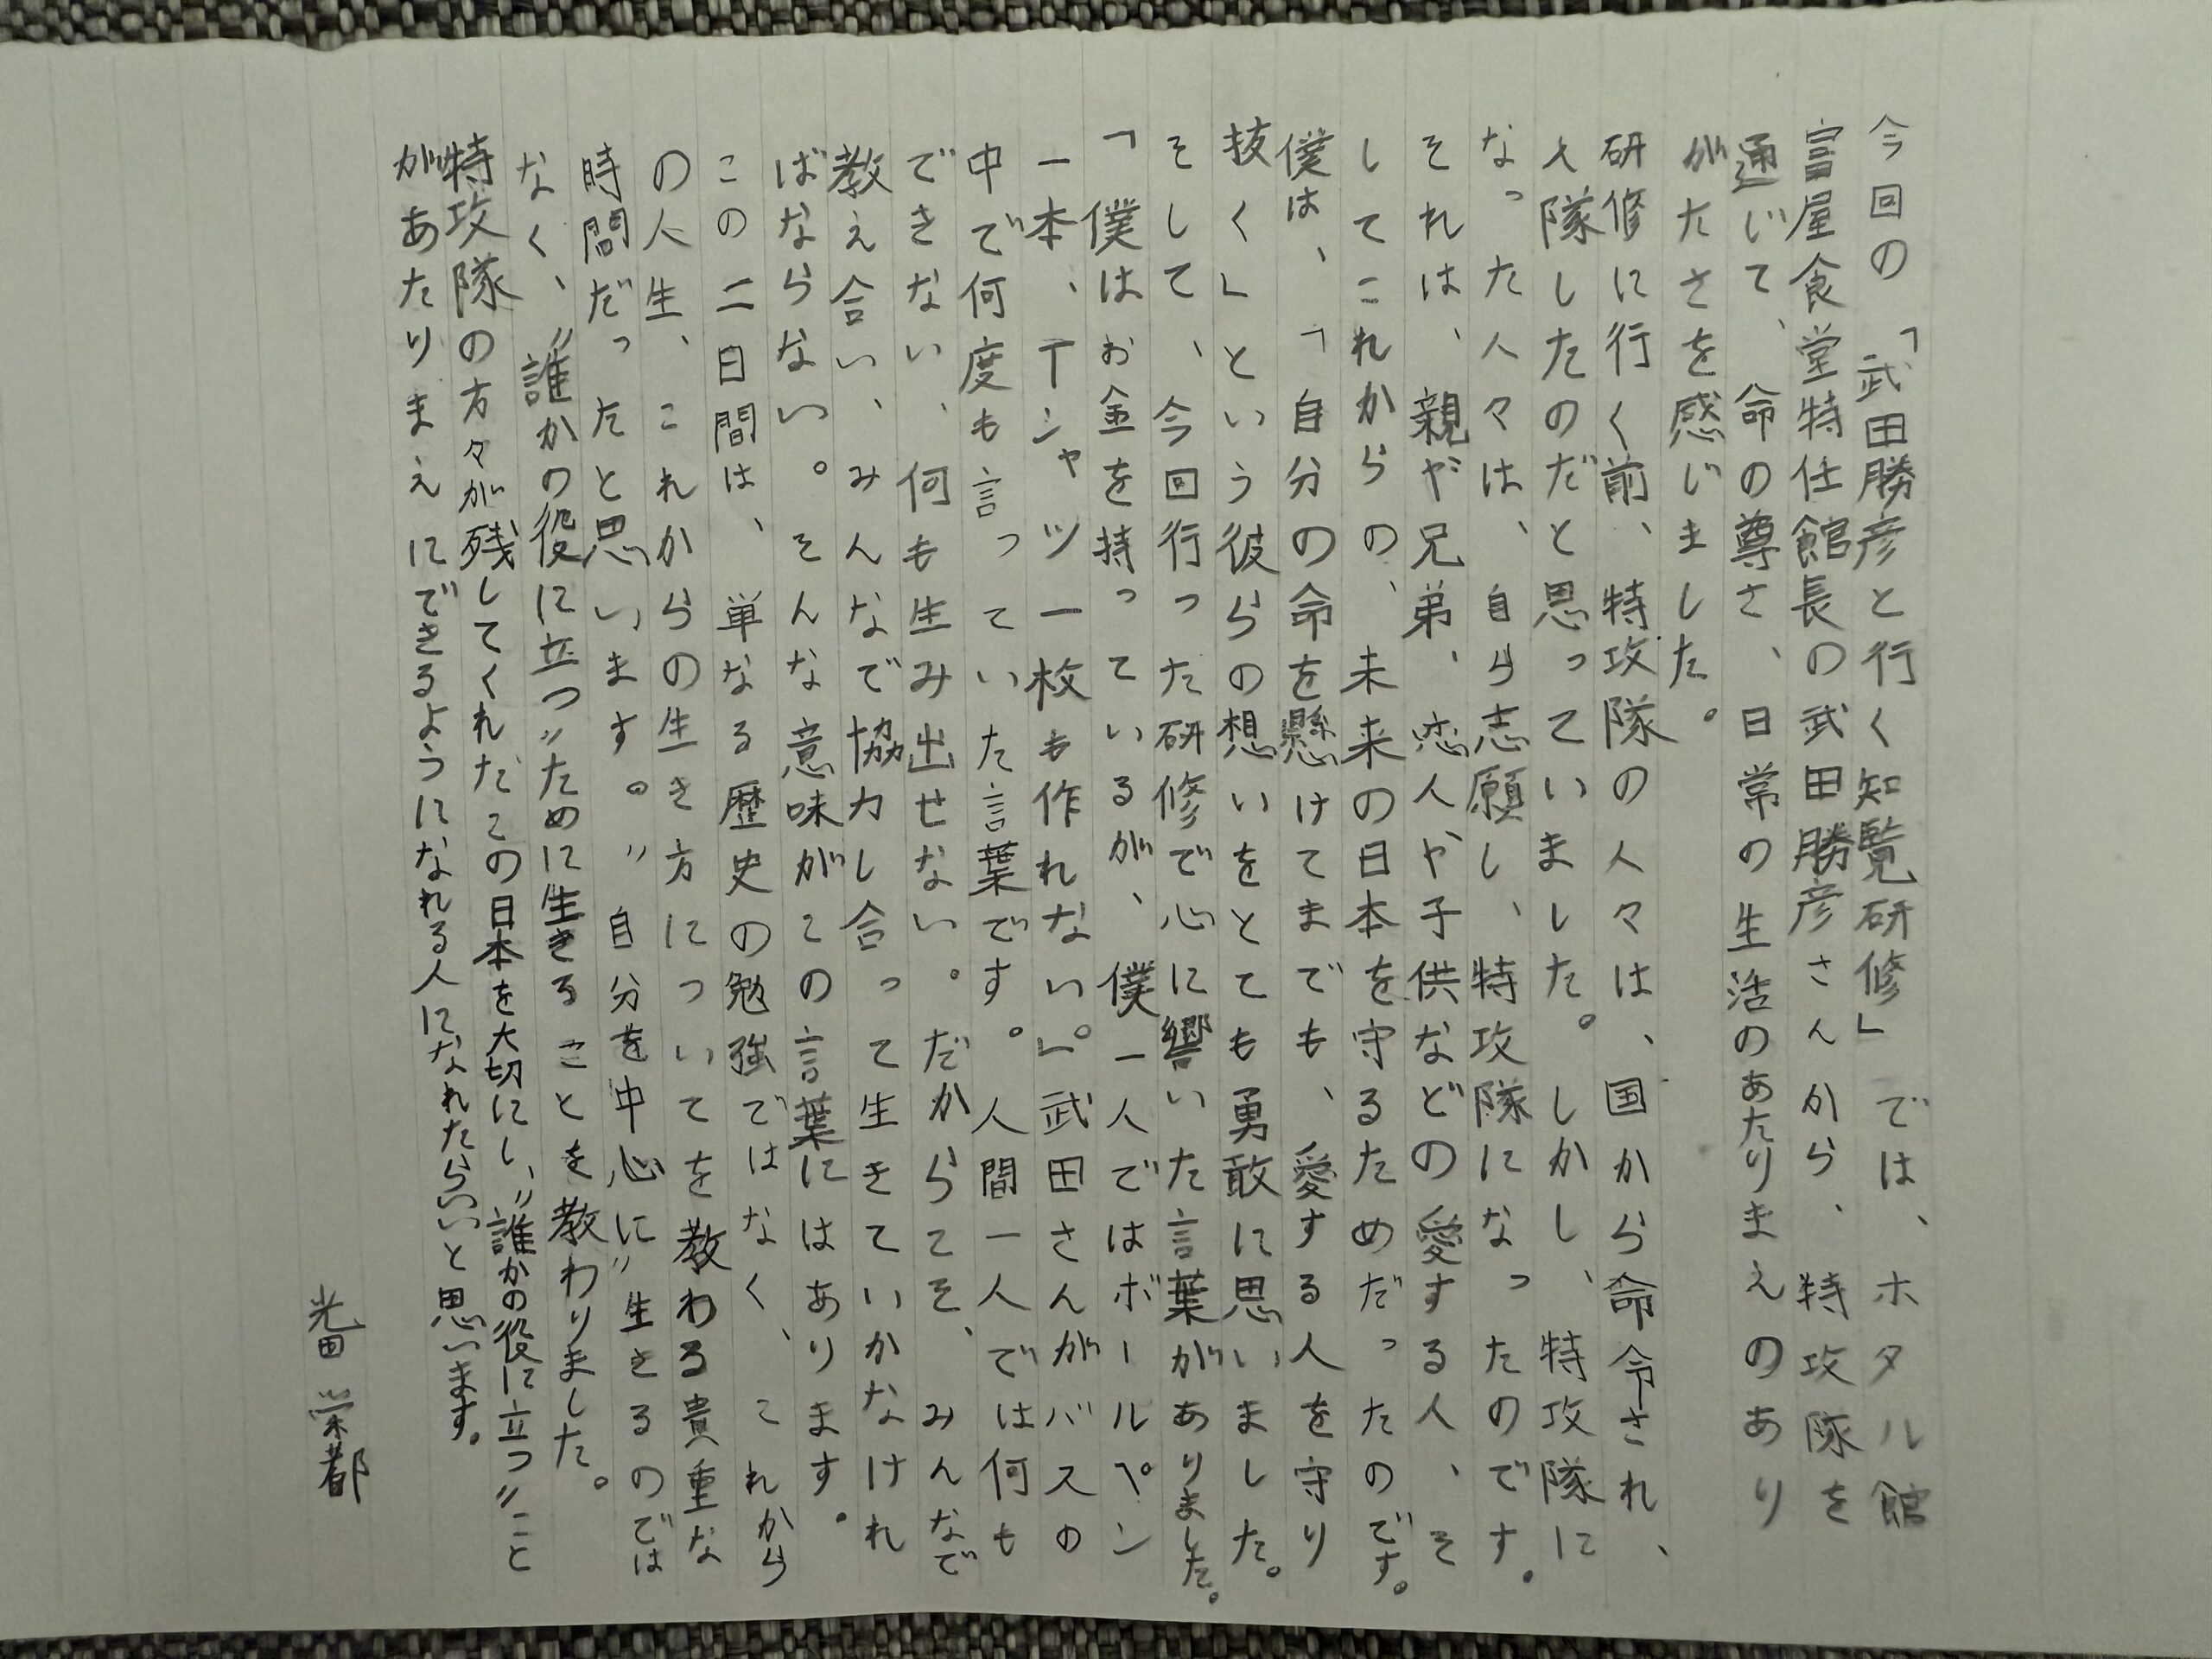 今回の「武田勝彦と行く知覧研修」では、ホタル館
富屋食堂特任館長の武田勝彦さんから、特攻隊を
通じて、命の尊さ、日常の生活のあたりまえのあり
がたさを感じました。
研修に行く前、特攻隊の人々は、国から命令され、
入隊したのだと思っていました。しかし、特攻隊に
なった人々は、自ら志願し、特攻隊になったのです。
それは、親や兄弟、恋人や子供などの愛する人、そ
してこれからの、未来の日本を守るためだったのです。
僕は、「自分の命を懸けてまでも、愛する人を守り
抜く」という彼らの想いをとても勇敢に思いました。
そして、今回行った研修で心に響いた言葉がありました。
「僕はお金を持っているが、僕一人ではボールペン
一本、Tシャツ一枚も作れない。」武田さんがバスの
中で何度も言っていた言葉です。人間一人では何も
できない、何も生み出せない。だからこそ、みんなで
教え合い、みんなで協力し合って生きていかなけれ
ばならない。そんな意味がこの言葉にはあります。
この二日間は、単なる歴史の勉強ではなく、これから
の人生、これからの生き方についてを教わる貴重な
時間だったと思います。〃自分を中心に〃生きるのでは
なく、〃誰かの役に立つ〃ために生きることを教わりました。
特攻隊の方々が残してくれたこの日本を大切にし、〃誰かの役に立つ〃こと
があたりまえにできるようになれる人になれたらいいと思います。
光田 栄都